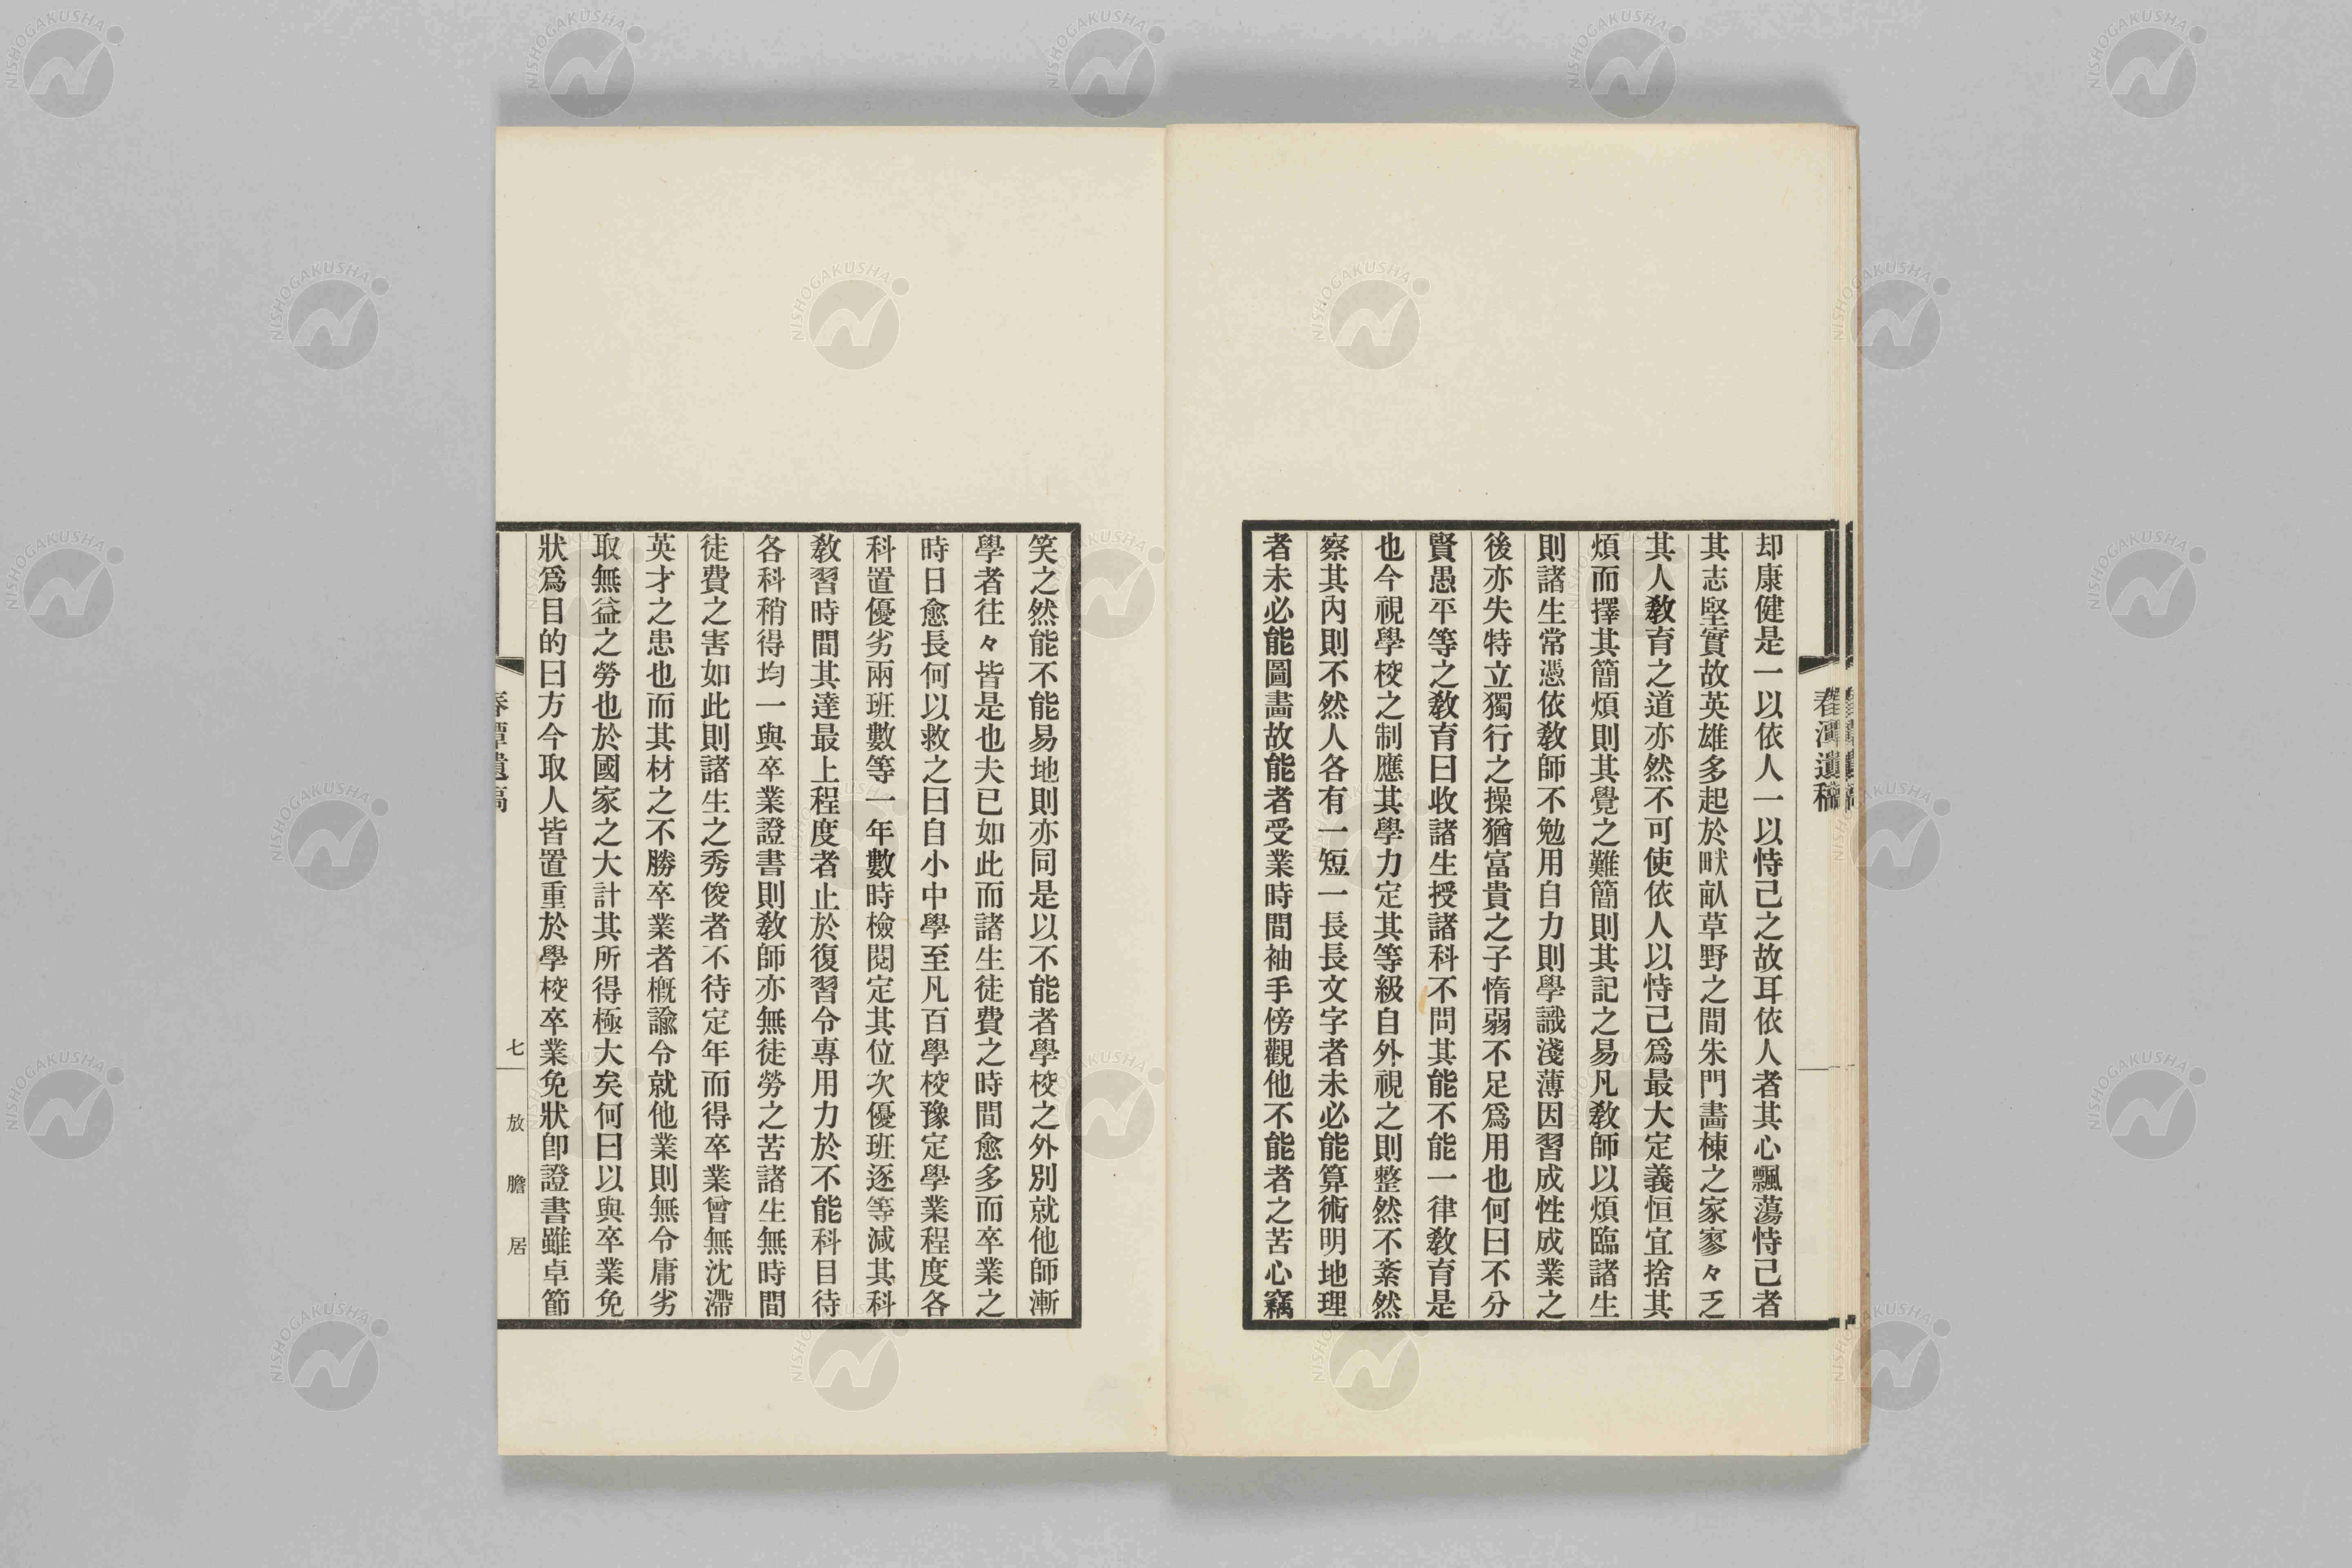 春潭遺稿
却康健是一以依人一以恃己之故耳依人者其心飄蕩恃己者
其志堅實故英雄多起於畎畝草野之間朱門畵棟之家寥々乏
其人教育之道亦然不可使依人以恃己爲最大定義恒宜捨其
煩而擇其簡煩則其覺之難簡則其記之易凡教師以煩臨諸生
則諸生常憑依教師不勉用自力則學識淺薄因習成性成業之
後亦失特立獨行之操猶富貴之子惰弱不足爲用也何曰不分
賢愚平等之教育曰收諸生授諸科不問其能不能一律教育是
也今視學校之制應其學力定其等級自外視之則整然不紊然
察其內則不然人各有一短一長長文字者未必能算術明地理
者未必能圖畵故能者受業時間袖手傍觀他不能者之苦心竊
笑之然能不能易地則亦同是以不能者學校之外別就他師漸
學者往々皆是也夫已如此而諸生徒費之時間愈多而卒業之
時日愈長何以救之曰自小中學至凡百學校豫定學業程度各
科置優劣兩班數等一年數時檢閱定其位次優班逐等減其科
教習時間其達最上程度者止於復習令專用力於不能科目待
各科稍得均一與卒業證書則教師亦無徒勞之苦諸生無時間
徒費之害如此則諸生之秀俊者不待定年而得卒業曾無沈滯
英才之患也而其材之不勝卒業者槪諭令就他業則無令庸劣
取無益之勞也於國家之大計其所得極大矣何曰以與卒業免
狀爲目的曰方今取人皆置重於學校卒業免狀卽證書雖卓節
春潭遺稿
七
放膽居
NISHOGAKUSHA